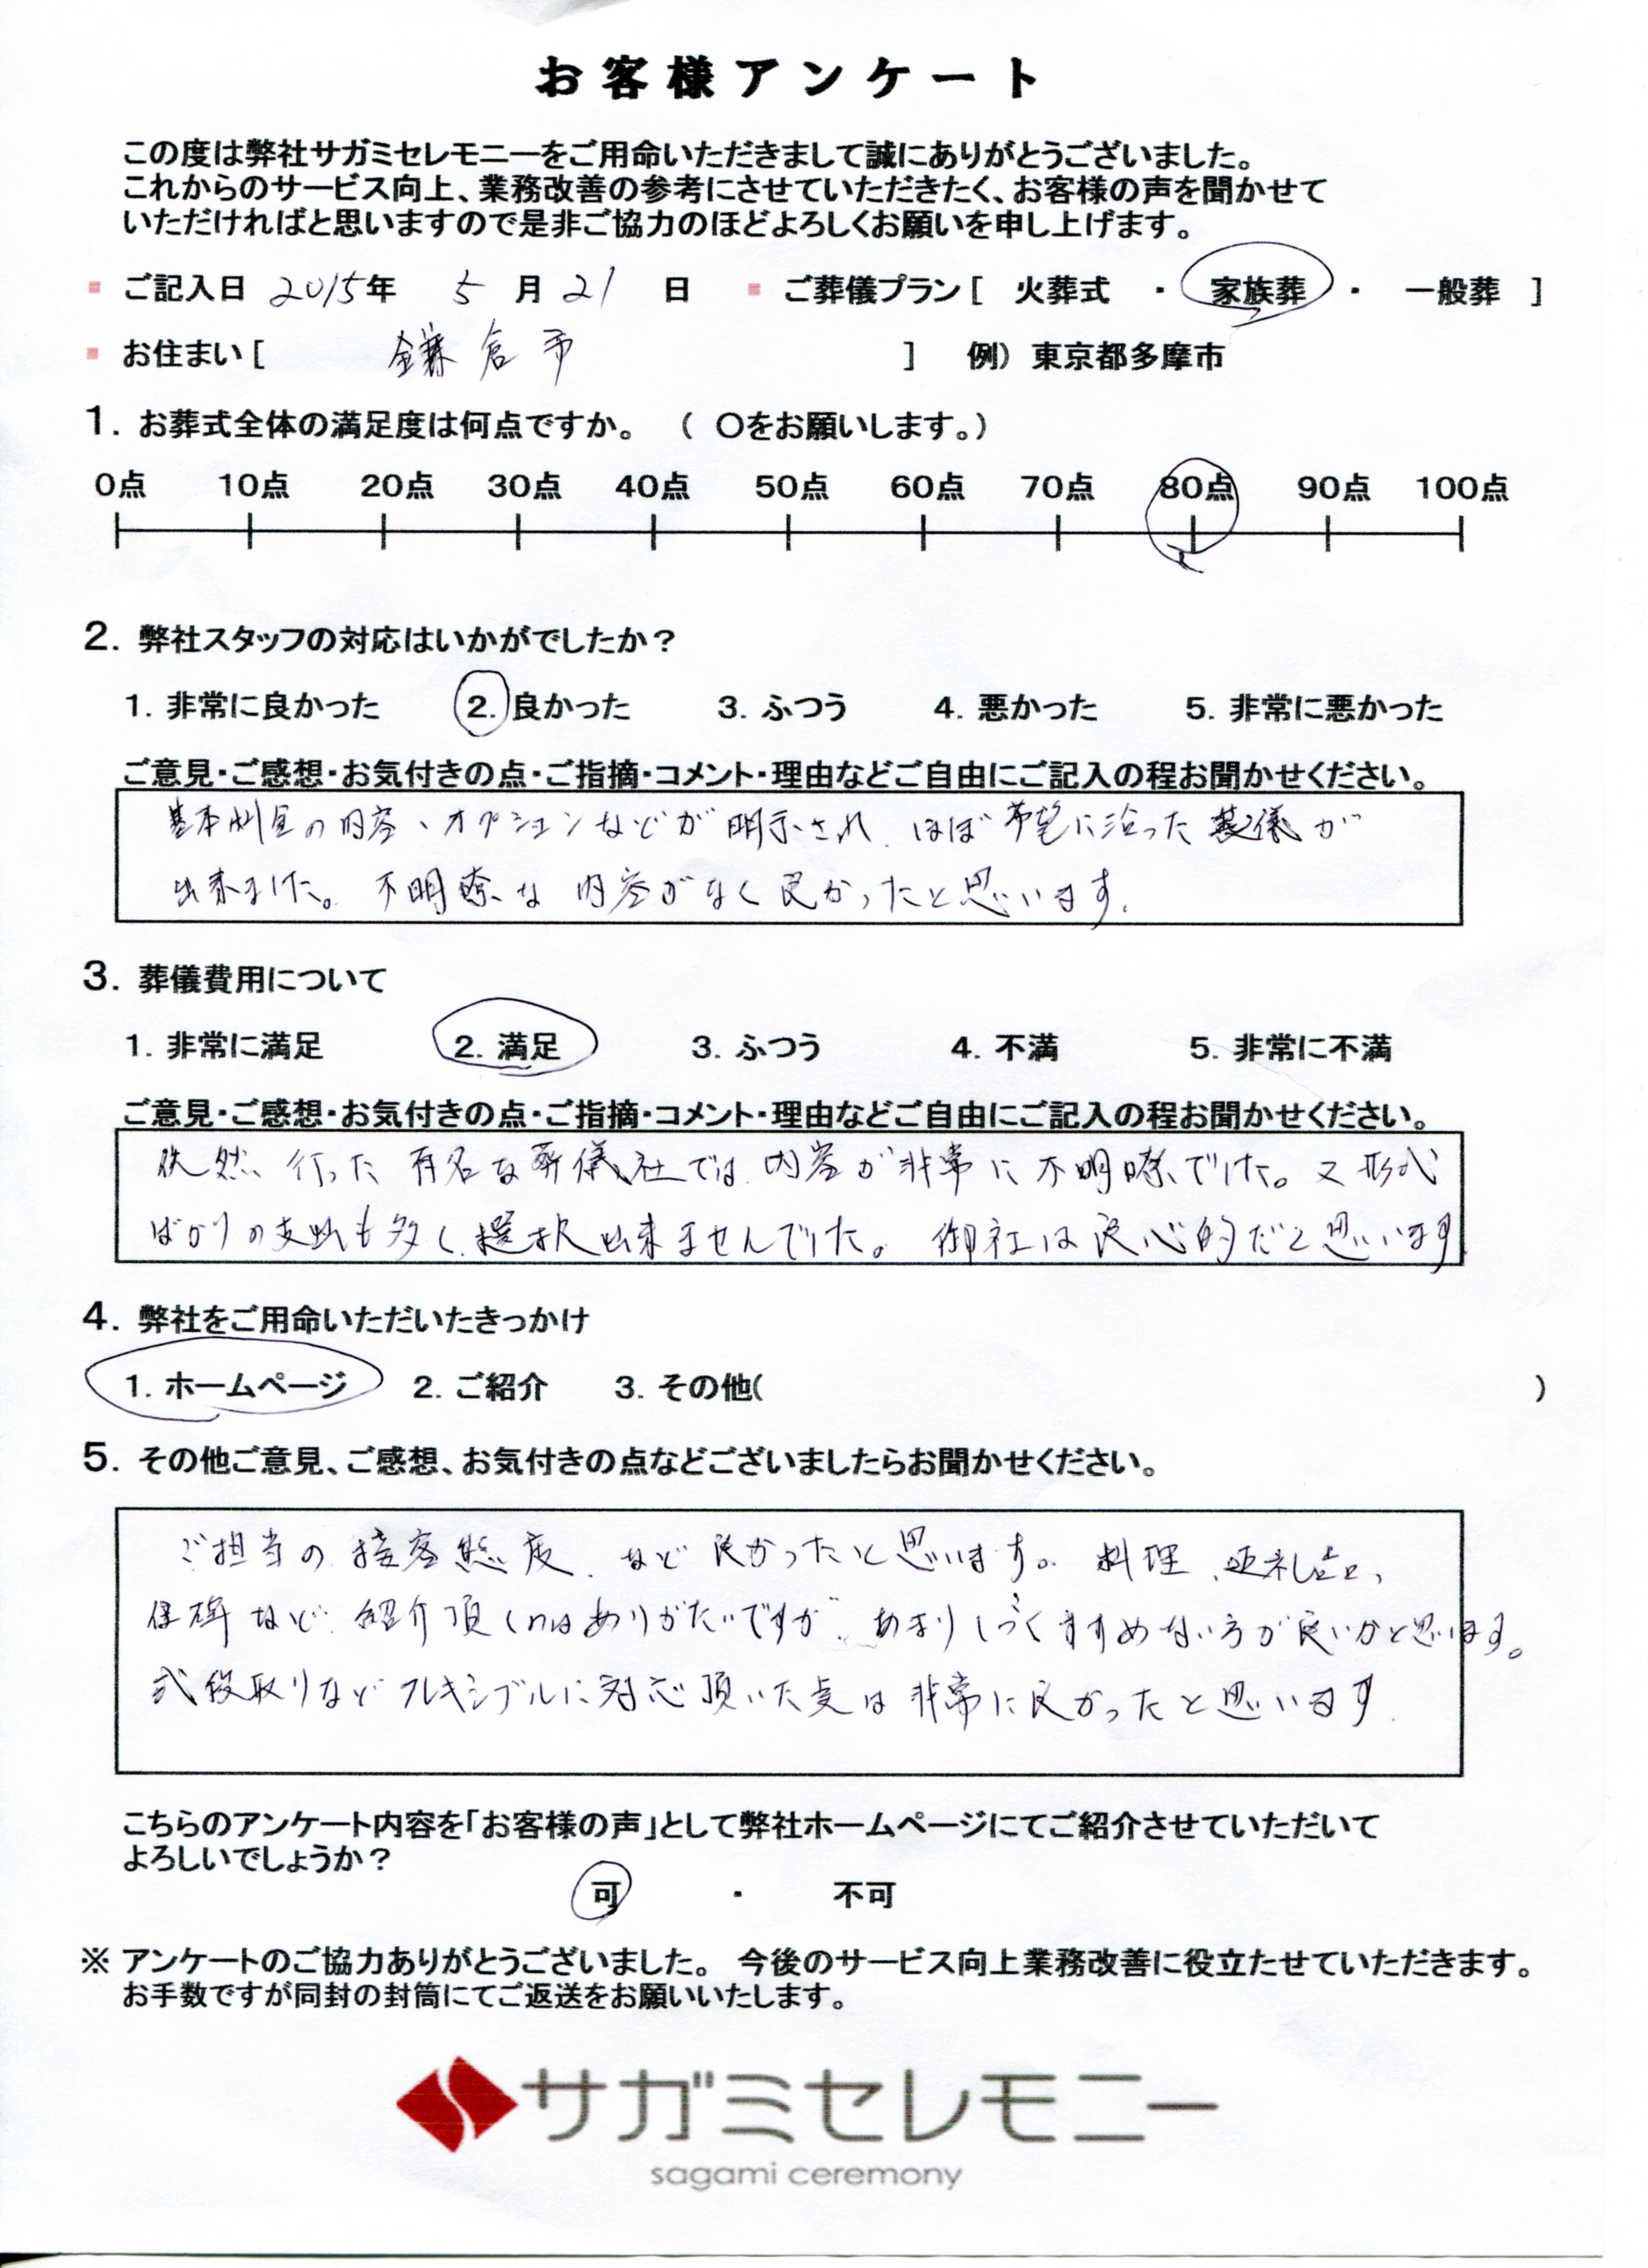 お客様アンケート
この度は弊社サガミセレモニーをご用命いただきまして誠にありがとうございました。
これからのサービス向上、業務改善の参考にさせていただきたく、お客様の声を聞かせて
いただければと思いますので是非ご協力のほどよろしくお願いを申し上げます。
ご記入日 2015年 5月21日 ご葬儀プラン [ 火葬式 ・ 家族葬 ・ 一般葬 ]
お住まい [ 鎌倉市 ] 例）東京都多摩市
1. お葬式全体の満足度は何点ですか。 （ ○をお願いします。）
0点 10点 20点 30点 40点 50点 60点 70点 80点 90点 100点
2. 弊社スタッフの対応はいかがでしたか？
1. 非常に良かった 2. 良かった 3. ふつう 4. 悪かった 5. 非常に悪かった
ご意見・ご感想・お気付きの点・ご指摘・コメント・理由などご自由にご記入の程お聞かせください。
基本料金の内容、オプションなどが明示され、ほぼ希望に沿った葬儀が
出来ました。不明瞭な内容がなく良かったと思います。
3. 葬儀費用について
1. 非常に満足 2. 満足 3. ふつう 4. 不満 5. 非常に不満
ご意見・ご感想・お気付きの点・ご指摘・コメント・理由などご自由にご記入の程お聞かせください。
行った有名な葬儀社では、内容が非常に不明瞭でした。又形式
ばかりの支出も多く、選択出来ませんでした。御社は良心的だと思います
4. 弊社をご用命いただいたきっかけ
1. ホームページ 2. ご紹介 3. その他( )
5. その他ご意見、ご感想、お気付きの点などございましたらお聞かせください。
ご担当の接客態度、など良かったと思います。料理、返礼品、
など紹介頂くのはありがたいですが、あまりしつこくすすめない方が良いかと思います。
式段取りなどフレキシブルに対応頂いた点は非常に良かったと思います。
こちらのアンケート内容を「お客様の声」として弊社ホームページにてご紹介させていただいて
よろしいでしょうか？
可 ・ 不可
※ アンケートのご協力ありがとうございました。 今後のサービス向上業務改善に役立たせていただきます。
お手数ですが同封の封筒にてご返送をお願いいたします。
サガミセレモニー
sagami ceremony